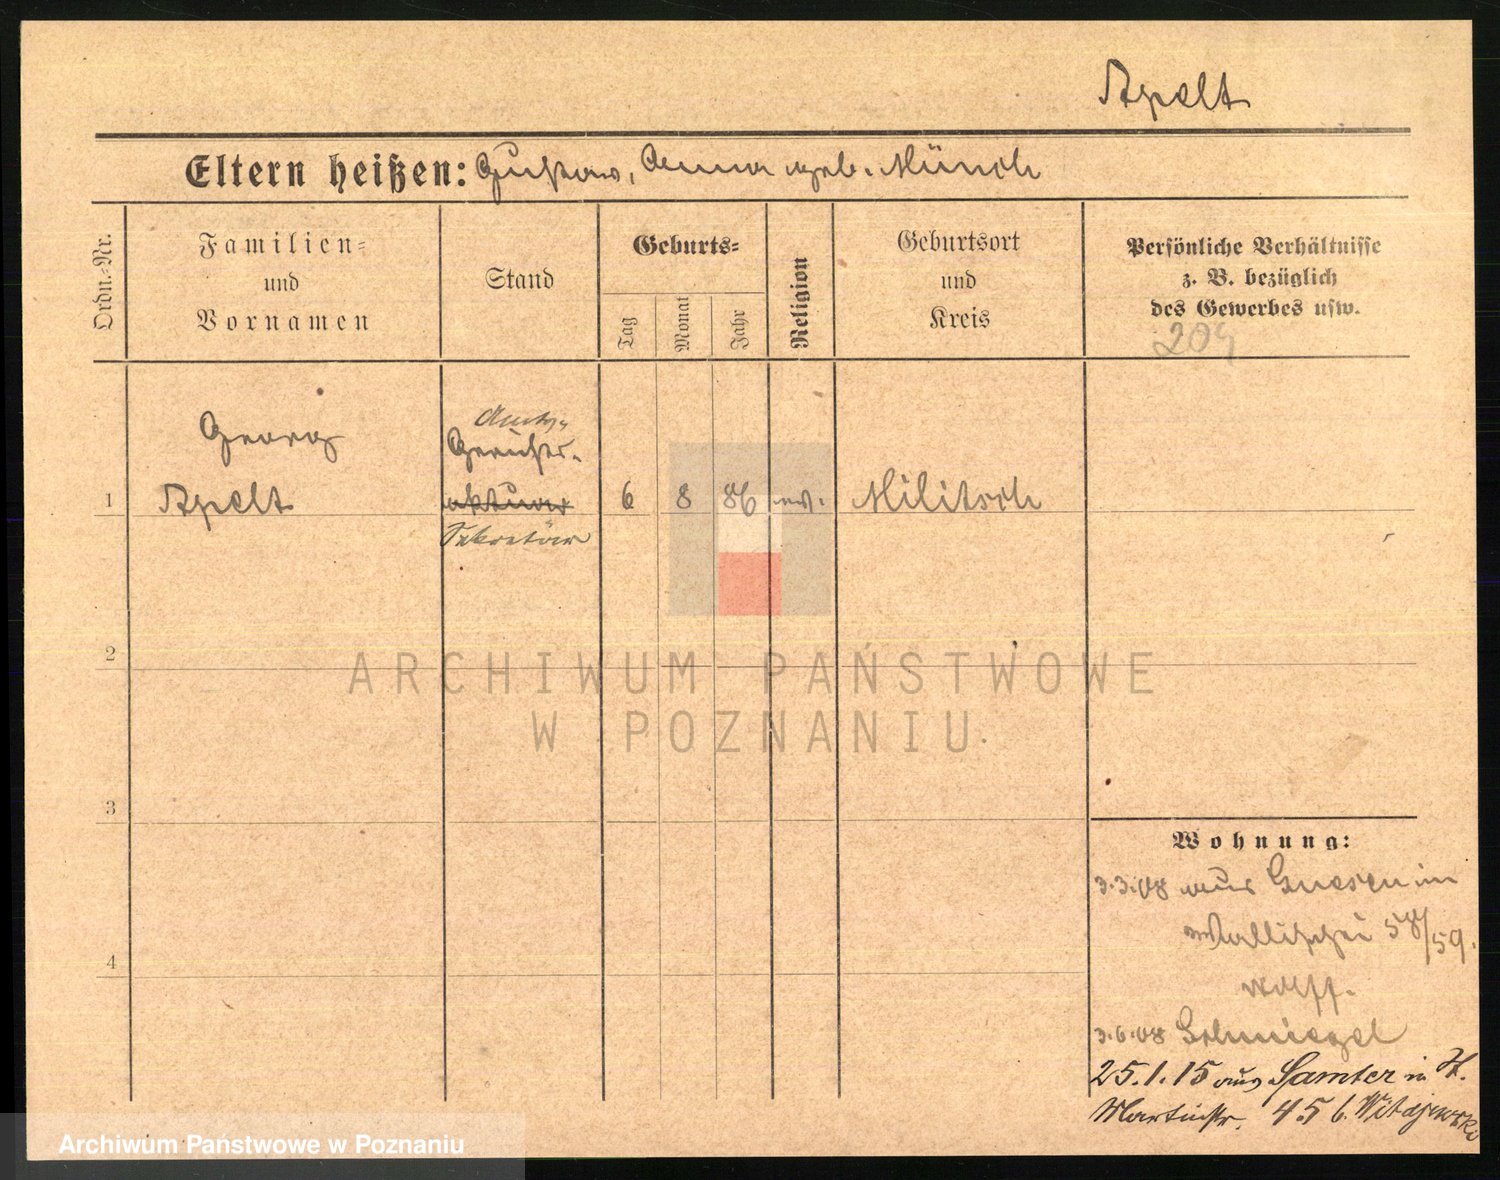 Apelt
Eltern heißen: Gustav, Anna geb. Münch
Ordn.-Nr.
Familien- und Vornamen
Stand
Geburts-
Tag
Monat
Jahr
Religion
Geburtsort und Kreis
Persönliche Verhältnisse
z. B. bezüglich
des Gewerbes usw.
209
Georg
Amts-
Gerichts-
1 Apelt aktuar 6 8 86 ev. Militsch
Sekretär
2
3
4
ARCHIWUM PAŃSTWOWE
W POZNANIU
Wohnung:
3.3.08 aus Gnesen in
Wallischei 58/59.
Wolff.
3.6.08 Schmiegel
25.1.15 aus Samter in St.
Martinstr. 45 b. Witajewski
Archiwum Państwowe w Poznaniu